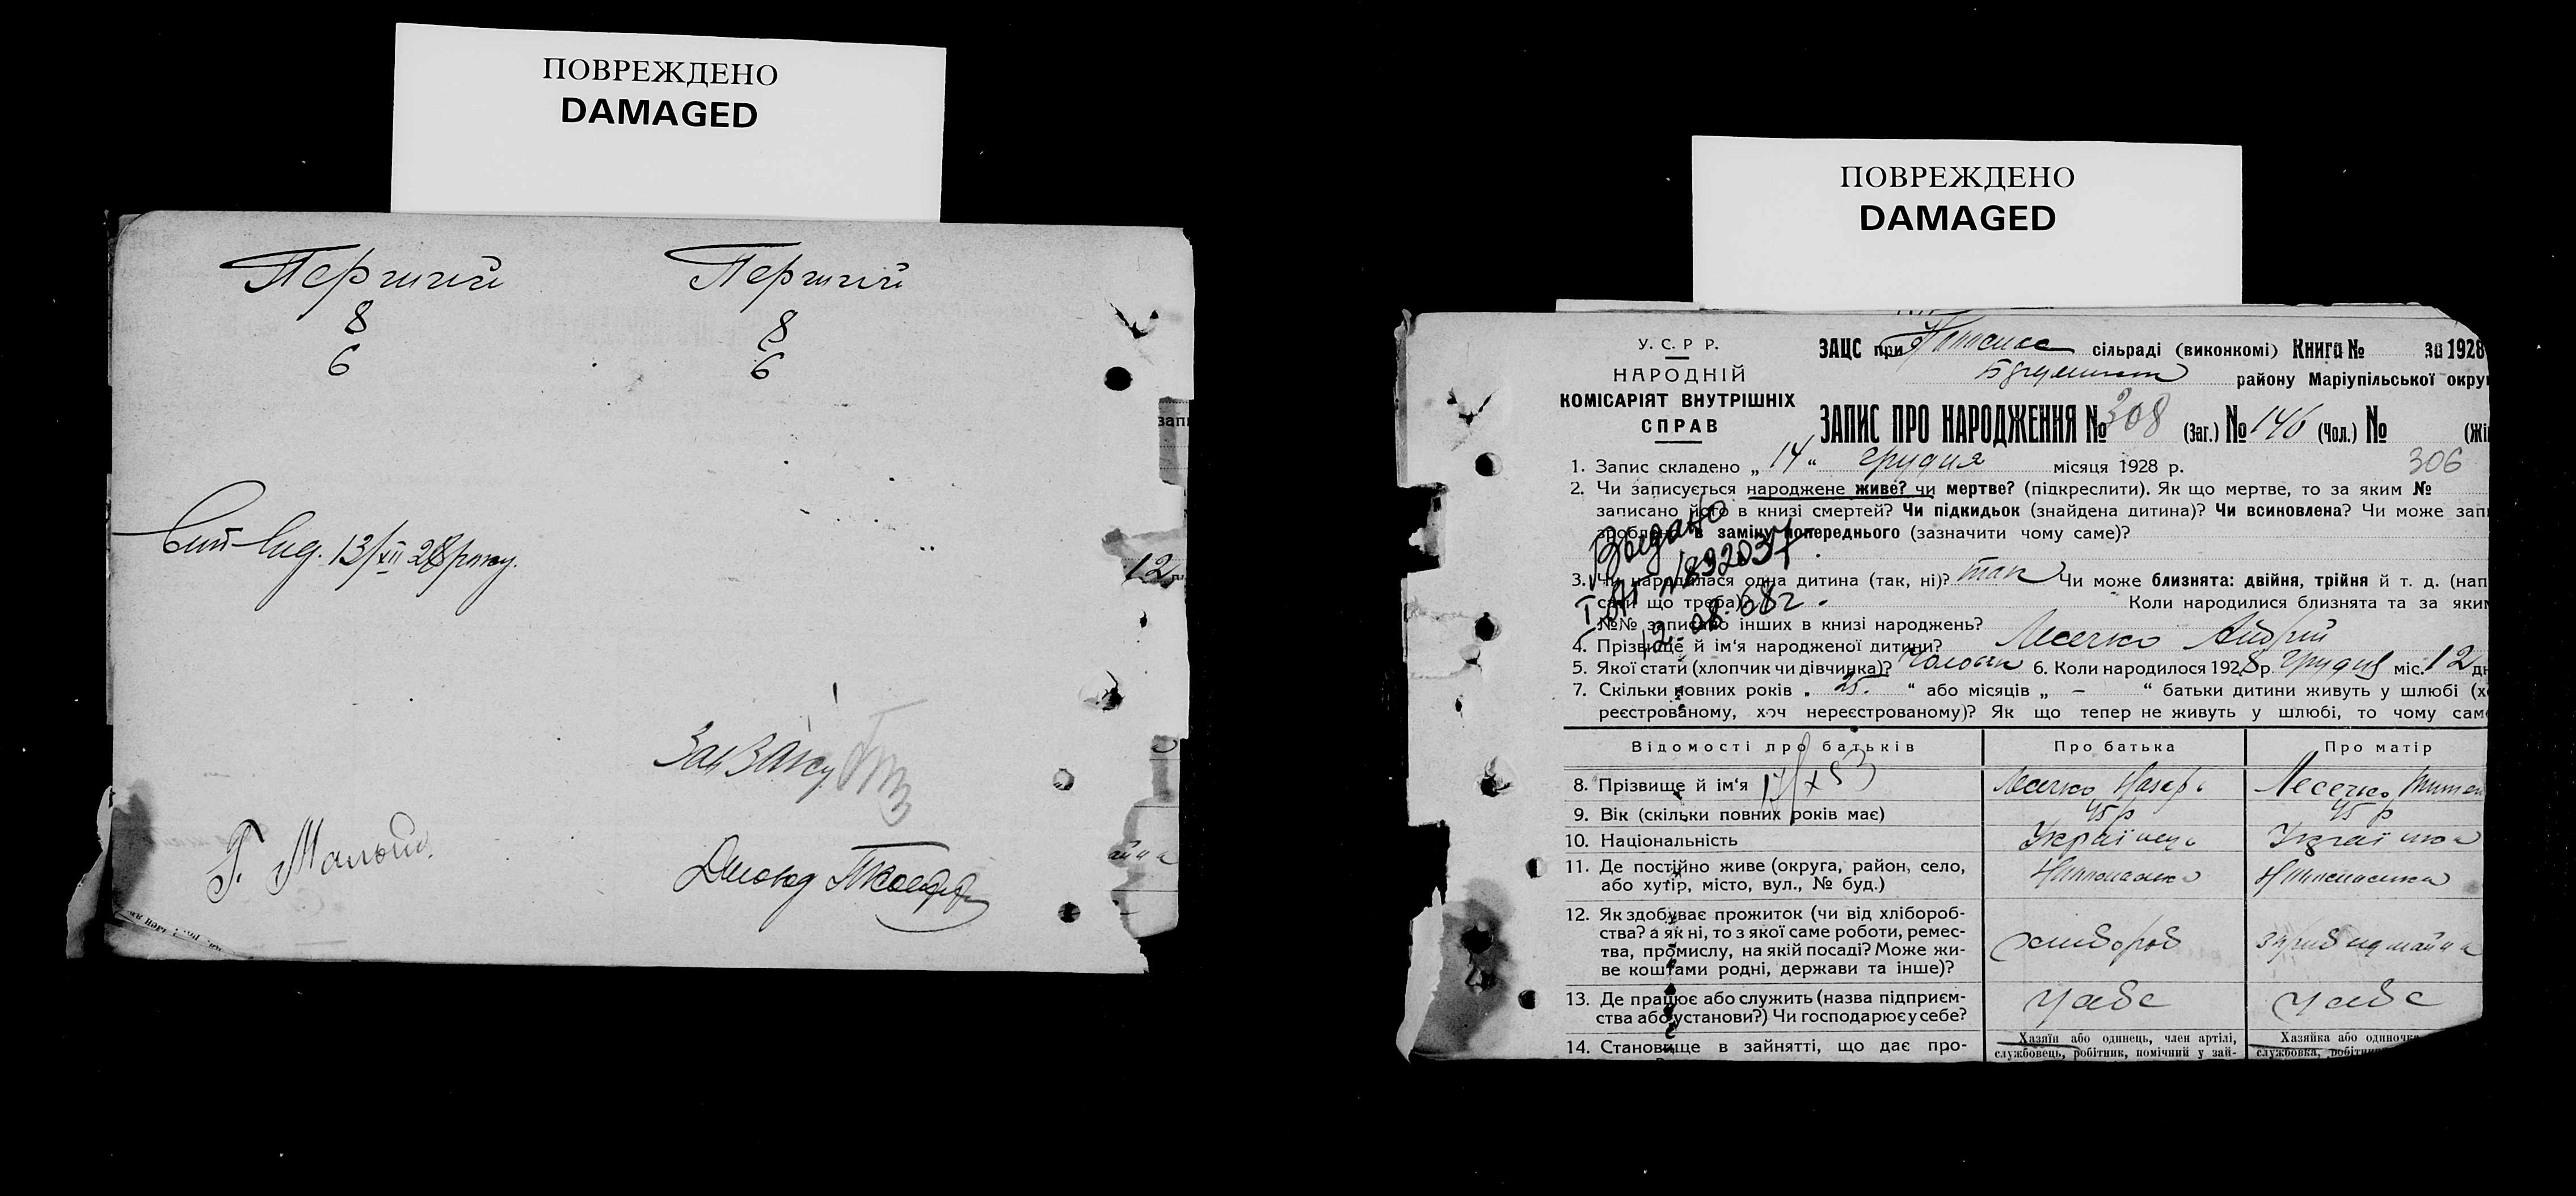 ПОВРЕЖДЕНО
DAMAGED
Перший Перший
8 8
6 6
13/XII 28 року.
Г.
ПОВРЕЖДЕНО
DAMAGED
У. С. Р Р.
НАРОДНІЙ
КОМІСАРІЯТ ВНУТРІШНІХ
СПРАВ
ЗАЦС при сільраді (виконкомі) Книга № за 1928
району Маріупільської окру
ЗАПИС ПРО НАРОДЖЕННЯ № 308 (Заг.) № 146 (Чол.) №
306
1. Запис складено „ 14 “ грудня місяця 1928 р.
2. Чи записується народжене живе? чи мертве? (підкреслити). Як що мертве, то за яким №
записано його в книзі смертей? Чи підкидьок (знайдена дитина)? Чи всиновлена? Чи може зап
зроблено в заміну попереднього (зазначити чому саме)?
Выдано
№ 892037
12-08.68г.
3. Чи народилася одна дитина (так, ні)? так Чи може близнята: двійня, трійня й т. д. (нап
сати що треба)? Коли народилися близнята та за яким
№№ записано інших в книзі народжень?
4. Прізвище й ім‘я народженої дитини? Лесечко Андрій
5. Якої стати (хлопчик чи дівчинка)? 6. Коли народилося 1928 р. грудня міс. 12 дн
7. Скільки повних років „ 25. “ або місяців „ – “ батьки дитини живуть у шлюбі (х
реєстрованому, хоч нереєстрованому)? Як що тепер не живуть у шлюбі, то чому сам
Відомості про батьків Про батька Про матір
8. Прізвище й ім‘я Лесечко Назар Лесечко
9. Вік (скільки повних років має) 45 р 45 р
10. Національність Українець Українка
11. Де постійно живе (округа, район, село,
або хутір, місто, вул., № буд.)
12. Як здобуває прожиток (чи від хлібороб-
ства? а як ні, то з якої саме роботи, ремес-
тва, промислу, на якій посаді? Може жи-
ве коштами родні, держави та інше)?
хлибороб
13. Де працює або служить (назва підприєм-
ства або установи?) Чи господарює у себе?
у себе у себе
14. Становище в зайнятті, що дає про-
Хазяїн або одинець, член артілі,
службовець, робітник, помічний у зай-
Хазяйка або одиночка
службовка, робітни